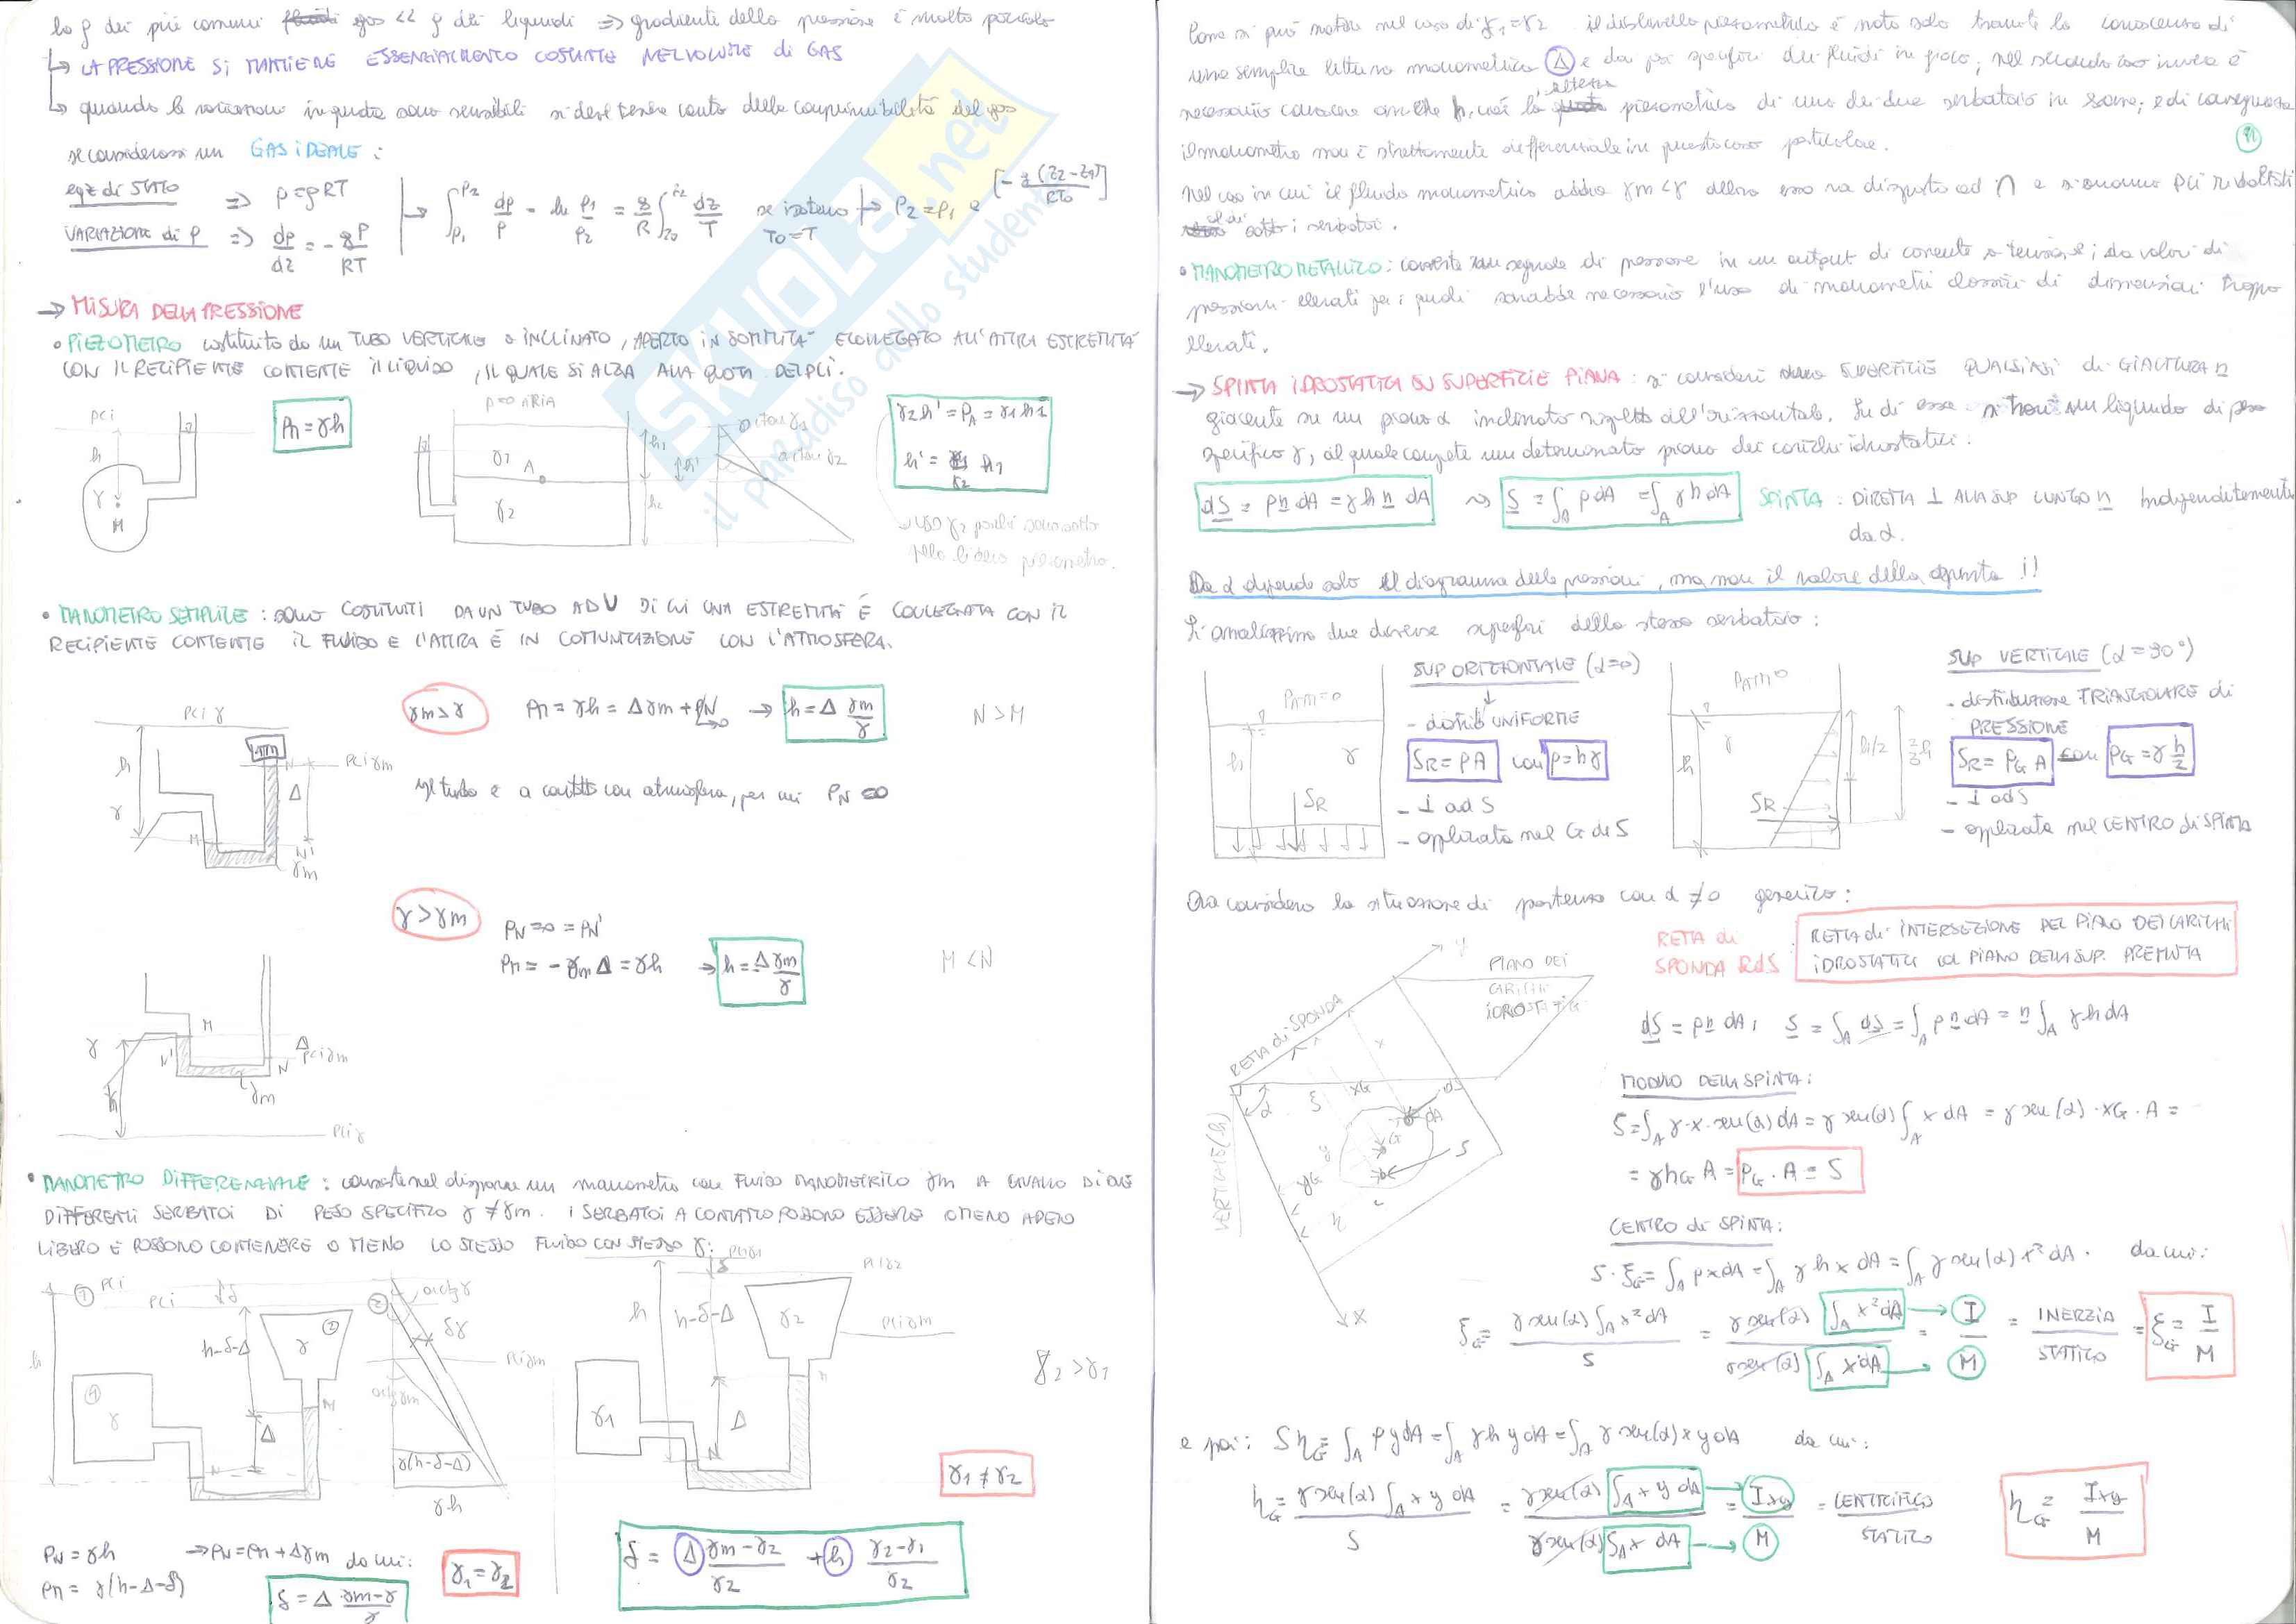 la ρ dei più comuni gas << ρ dei liquidi => gradiente della pressione è molto piccolo
↳ LA PRESSIONE SI MANTIENE ESSENZIALMENTE COSTANTE NEL VOLUME di GAS
↳ quando le variazioni in quota sono sensibili si deve tenere conto della comprimibilità del gas
se considerassi un GAS IDEALE :
eqz di STATO => p=ρRT
VARIAZIONE di P => dp/dz = - gP/RT
→ ∫p1^p2 dp/p = ln p1/p2 = g/R ∫z0^z dz/T se isoterno To=T → P2=P1 e^[-g(z2-z1)/RTo]
→ MISURA DELLA PRESSIONE
• PIEZOMETRO costituito da un TUBO VERTICALE o INCLINATO, APERTO IN SOMMITÀ E COLLEGATO ALL'ALTRA ESTREMITÀ
CON IL RECIPIENTE CONTENTE il LIQUIDO, IL QUALE SI ALZA ALLA QUOTA DEL PCI.
PCI
h
γ
M
PM = γh
p=0 ARIA
γ1 A
γ2
h1
h'
h2
arctan γ1
arctan γ2
γ2h' = PA = γ1 h1
h' = γ1/γ2 h1
uso γ2 poiché
• MANOMETRO SEMPLICE : sono COSTITUITI DA UN TUBO AD U DI CUI UNA ESTREMITÀ È COLLEGATA CON IL
RECIPIENTE CONTENTE IL FLUIDO E L'ALTRA È IN COMUNICAZIONE CON L'ATMOSFERA.
γm>γ
PM = γh = Δγm + PN → h = Δ γm/γ
N > M
PCI γ
h
γ
M
N
PCI γm
Δ
N'
γm
il tubo è a contatto con atmosfera, per cui PN=0
γ>γm
PN=0 = PN'
PM = - γmΔ = γh → h = -Δγm/γ
M < N
γ
M
N'
N
Δ
PCI γm
γm
h
PCI γ
• MANOMETRO DIFFERENZIALE : consiste nel disporre un manometro con FLUIDO MANOMETRICO γm A CAVALLO DI DUE
DIFFERENTI SERBATOI DI PESO SPECIFICO γ ≠ γm. I SERBATOI A CONTATTO POSSONO ESSERE O MENO A PELO
LIBERO E POSSONO CONTENERE O MENO LO STESSO FLUIDO CON STESSO γ:
① PCI
PCI
δ
h
h-δ-Δ
γ
②
①
γ
M
N
Δ
②
arctg γ
δγ
PCI γm
arctg γm
γ(h-δ-Δ)
γh
PCI γ1
PCI γ2
δ
h
h-δ-Δ
γ2
PCI γm
γ1
Δ
N
γ2 > γ1
γ1 ≠ γ2
PN = γh
PM = γ(h-Δ-δ)
→ PN = PM + Δγm da cui:
δ = Δ γm-γ/γ
γ1 = γ2
δ = Δ γm-γ2/γ2 + h γ2-γ1/γ2
Come si può notare nel caso di γ1=γ2 il dislivello piezometrico è noto solo tramite la conoscenza di
una semplice lettura manometrica Δ e dai pesi specifici dei fluidi in gioco; nel secondo caso invece è
necessario conoscere anche h, cioè la altezza piezometrica di uno dei due serbatoio in esame; e di conseguenza
il manometro non è strettamente differenziale in questo caso particolare.
Nel caso in cui il fluido manometrico abbia γm<γ allora esso va disposto ad ∩ e si avranno PCI ribaltati
al di sotto i serbatoi.
• MANOMETRO METALLICO: converte un segnale di pressione in un output di corrente o tensione; da valori di
pressioni elevati per i quali sarebbe necessario l'uso di manometri classici di dimensioni troppo
elevati.
→ SPINTA IDROSTATICA SU SUPERFICIE PIANA : si consideri SUPERFICIE QUALSIASI di GIACITURA n
giacente su un piano α inclinato rispetto all'orizzontale. Su di essa si trovi un liquido di peso
specifico γ, al quale compete un determinato piano dei carichi idrostatici :
dS = p n dA = γ h n dA ~> S = ∫A p dA = ∫A γ h dA SPINTA : DIRETTA ⊥ ALLA SUP LUNGO n indipendentemente
da α.
Da α dipende solo il diagramma delle pressioni, ma non il valore della spinta !!
Si analizzino due diverse superfici dello stesso serbatoio :
PATM=0
h
γ
SR
SUP ORIZZONTALE (α=0)
- distrib UNIFORME
SR = pA con p=hγ
- ⊥ ad S
- applicata nel G di S
PATM=0
γ
h
SR
h/2
2/3 h
SUP VERTICALE (α=90°)
- distribuzione TRIANGOLARE di
PRESSIONE
SR = PG A con PG = γ h/2
- ⊥ ad S
- applicata nel CENTRO di SPINTA
Ora considero la situazione di partenza con α ≠ 0 generico :
RETTA di
SPONDA RdS
: RETTA di INTERSEZIONE DEL PIANO DEI CARICHI
IDROSTATICI col PIANO DELLA SUP. PREMUTA
y
PIANO DEI
CARICHI
IDROSTATICI
RETTA di SPONDA
VERTICALE (h)
α
ξ
xG
x
dS
dA
G
S
yG
η
c
x
dS = p n dA, S = ∫A dS = ∫A p n dA = n ∫A γ h dA
MODULO DELLA SPINTA:
S = ∫A γ·x·sen(α) dA = γ sen(α) ∫A x dA = γ sen(α)·xG·A =
= γ hG A = PG·A = S
CENTRO di SPINTA:
S·ξG = ∫A p x dA = ∫A γ h x dA = ∫A γ sen(α) x² dA. da cui:
ξG = γ sen(α) ∫A x² dA / S = γ sen(α) ∫A x² dA / γ sen(α) ∫A x dA → I / M = INERZIA / STATICO = ξG = I/M
e poi: SηG = ∫A p y dA = ∫A γ h y dA = ∫A γ sen(α) x y dA da cui:
ηG = γ sen(α) ∫A x y dA / S = γ sen(α) ∫A x y dA / γ sen(α) ∫A x dA → Ixy / M = CENTRIFUGO / STATICO
ηG = Ixy / M
SKUOLA.net
il paradiso dello studente